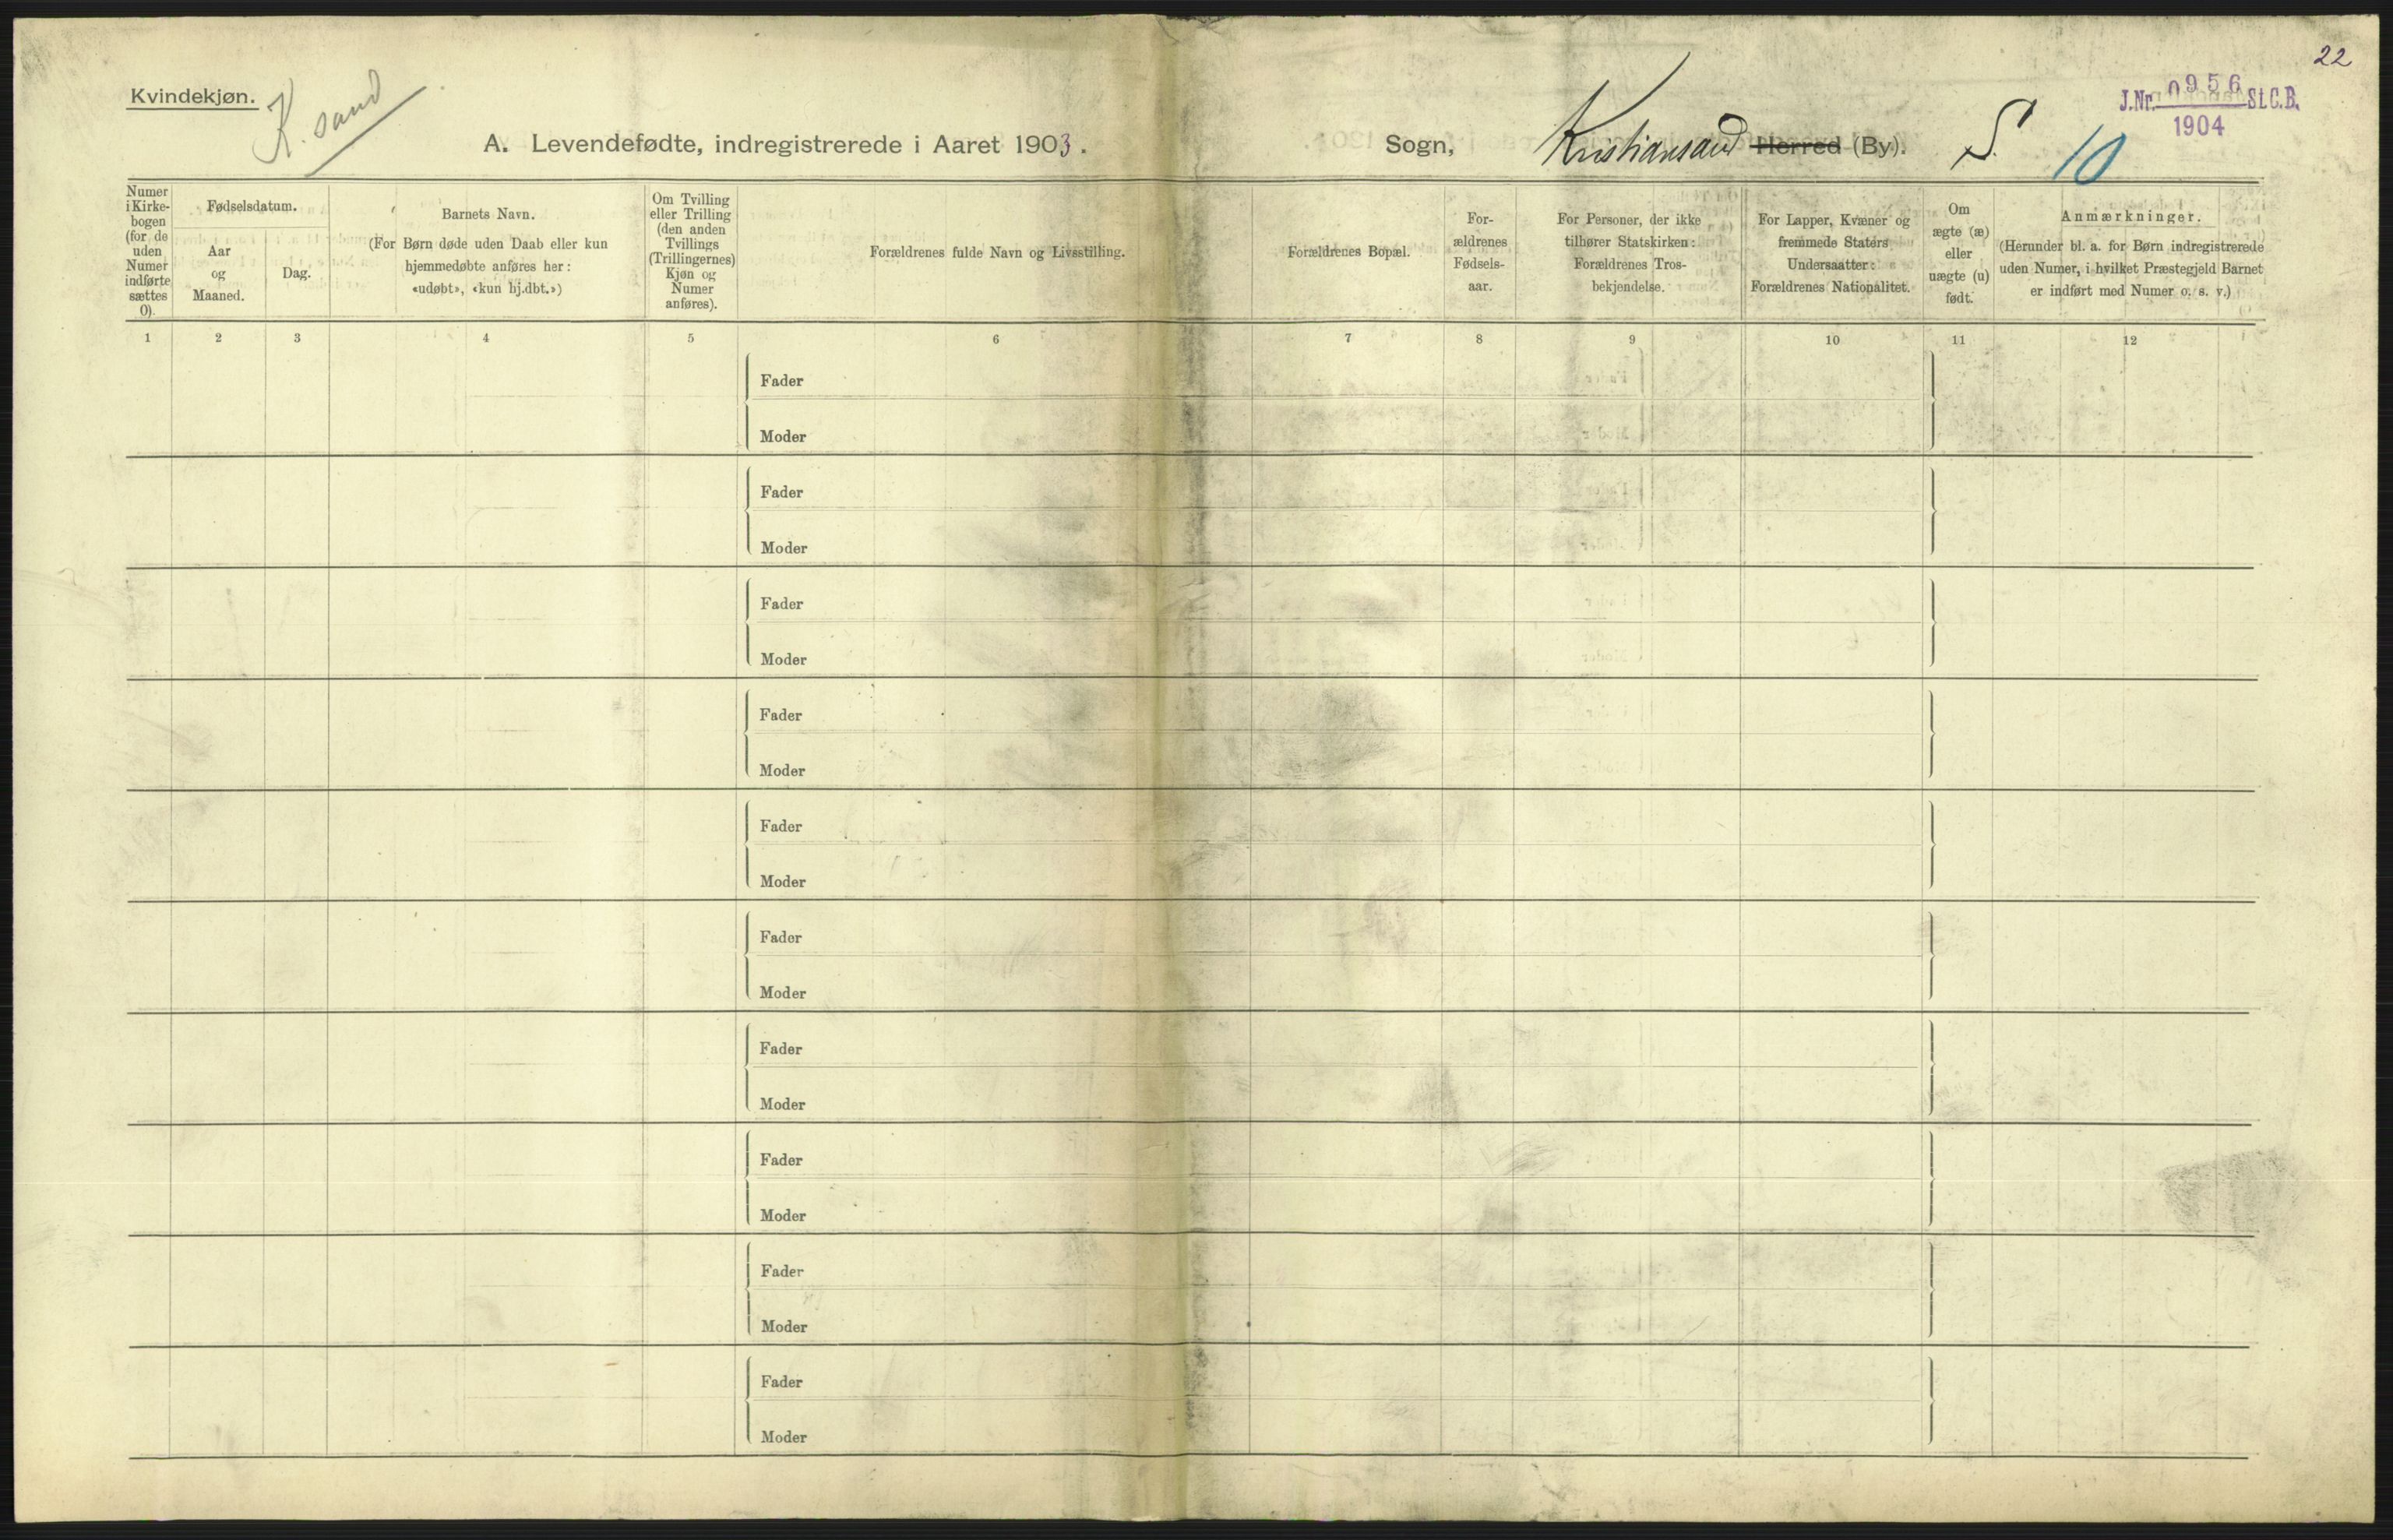 22
Kvindekjøn.
K.sand
J.Nr. 0956 St.C.B.
1904
A. Levendefødte, indregistrerede i Aaret 1903.
Sogn, Kristiansand Herred (By). S.
10
Numer i Kirke-bogen (for de uden Numer indførte sættes 0).
Fødselsdatum.
Aar og Maaned.
Dag.
Barnets Navn.
(For Børn døde uden Daab eller kun
hjemmedøbte anføres her:
«udøbt», «kun hj.dbt.»)
Om Tvilling
eller Trilling
(den anden
Tvillings
(Trillingernes)
Kjøn og
Numer
anføres).
Forældrenes fulde Navn og Livsstilling.
Forældrenes Bopæl.
For-
ældrenes
Fødsels-
aar.
For Personer, der ikke
tilhører Statskirken:
Forældrenes Tros-
bekjendelse.
For Lapper, Kvæner og
fremmede Staters
Undersaatter:
Forældrenes Nationalitet.
Om
ægte (æ)
eller
uægte (u)
født.
Anmærkninger.
(Herunder bl. a. for Børn indregistrerede
uden Numer, i hvilket Præstegjeld Barnet
er indført med Numer o. s. v.)
1 2 3 4 5 6 7 8 9 10 11 12
Fader
Moder
Fader
Moder
Fader
Moder
Fader
Moder
Fader
Moder
Fader
Moder
Fader
Moder
Fader
Moder
Fader
Moder
Fader
Moder